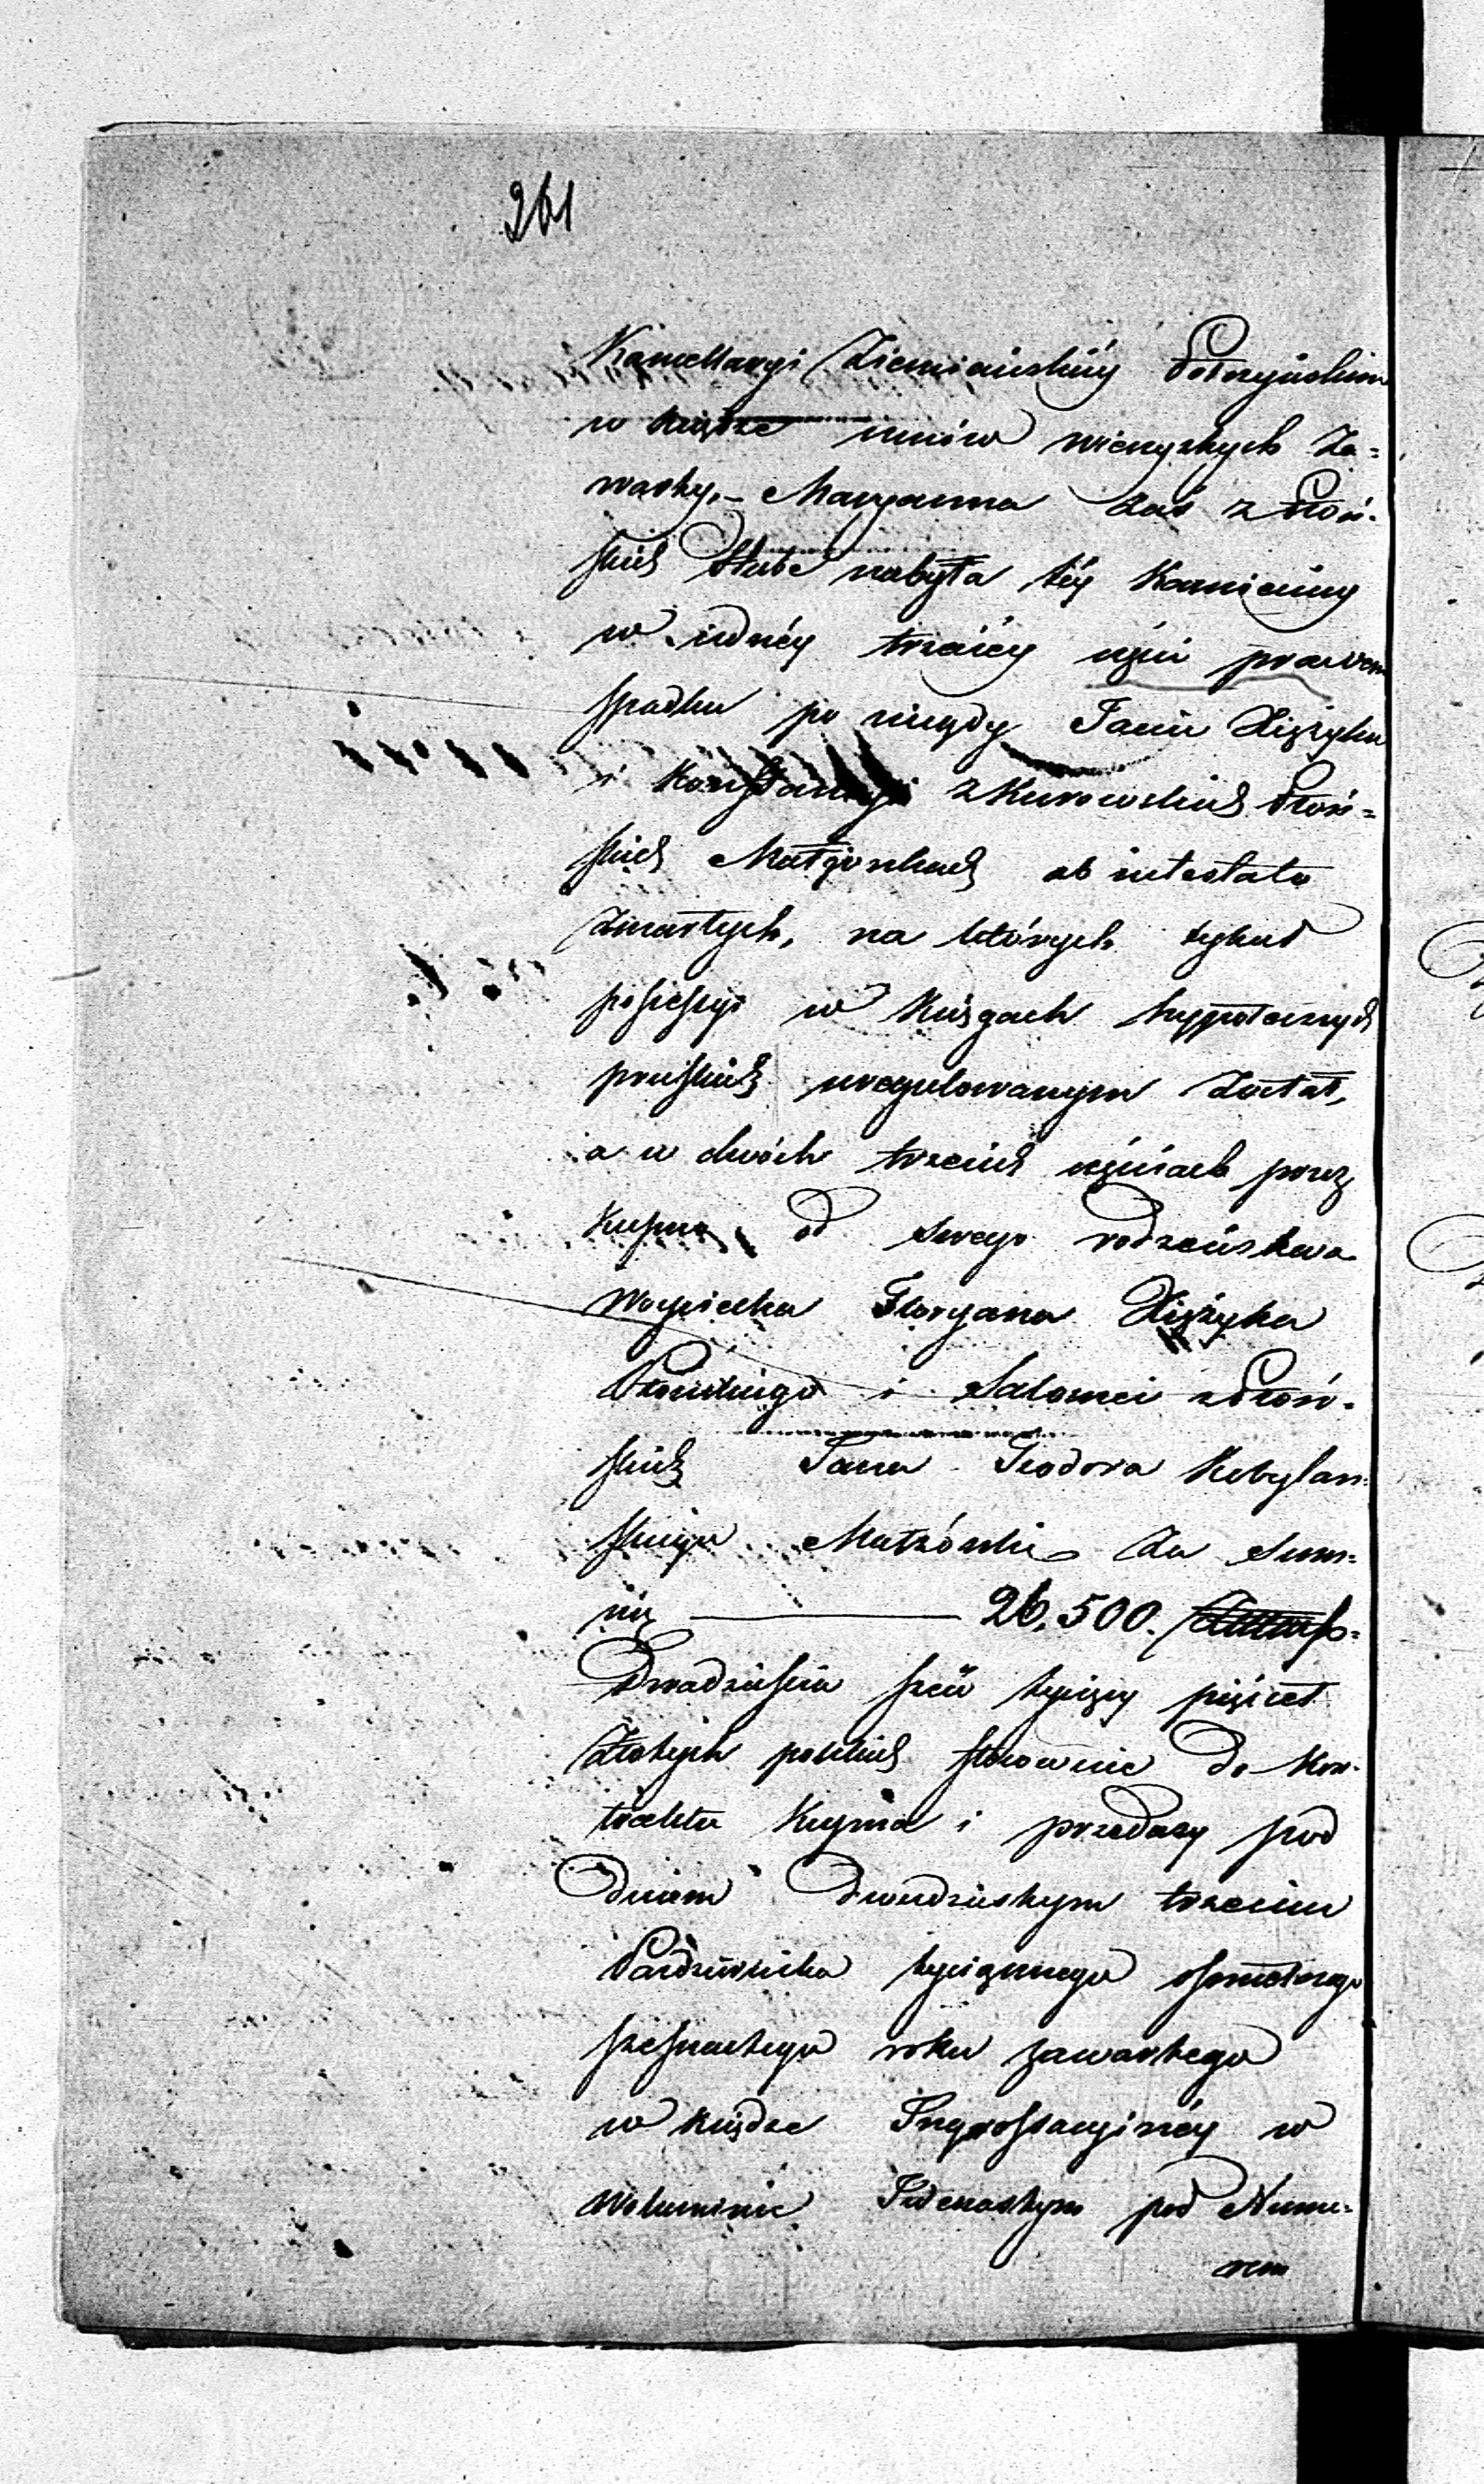 261
Kancellaryi Ziemiańskiéy
w księdze umów wieczystych Za-
warty. – Maryanna zaś z Płoń-
skich nabyła téy Kamienicy
w iednéy trzeciéy części prawem
spadku po niegdy Janie Xiężyku
i Konstancyi z Kurowskich Płoń-
skich Małżonkach ab intestato
zmarłych, na których tytuł
possessyi w księgach hypotecznych
pruskich uregulowanym został,
a w dwóch trzecich częściach przez
kupno od swego rodzeństwa
Woyciecha Floryana Xiężyka
Płońskiego i Salomei z Płoń-
skich Jana Teodora Kobylań-
skiego Małżonki za Sum-
mę ——— 26,500.
Dwadzieścia sześć tysięcy pięćset
złotych polskich stosownie do Kon-
traktu Kupna i przedaży pod
dniem dwudziestym trzecim
Października tysiącznego osmsetnego
szesnastego roku zawartego
w księdze Ingrossacyinéy w
Woluminie Iedenastym pod Nume-
rem